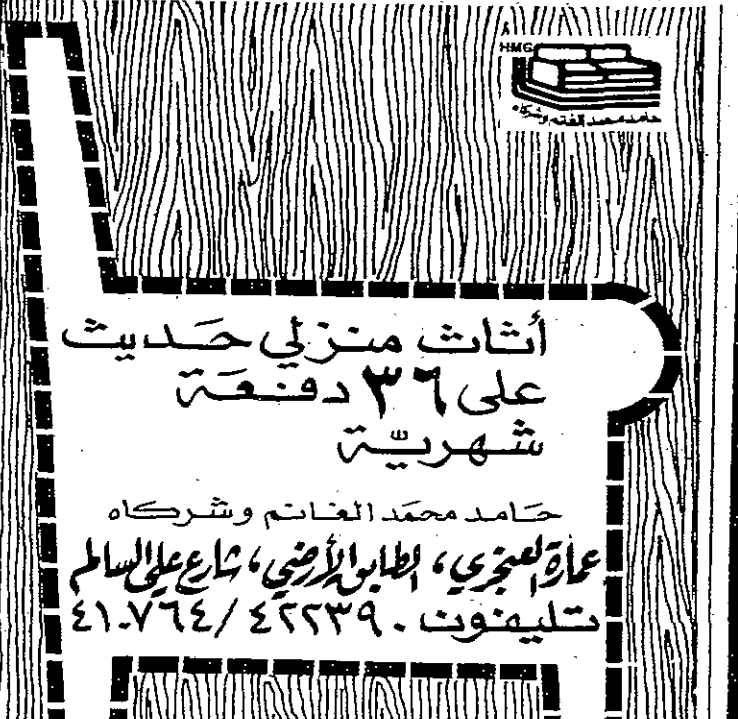 HMG
حامد محمد الغانم وشركاه
أثاث منزلي حديث
على ٣٦ دفعة
شهرية
حامد محمد الغانم وشركاه
عمارة العنجري، الطابق الأرضي، شارع علي السالم
تليفون ٤٢٢٣٩٠ / ٤١٠٧٦٤